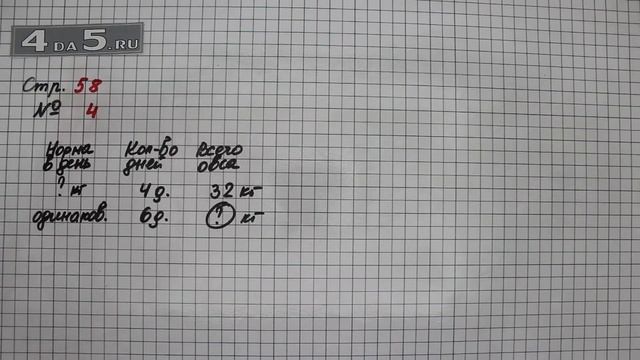 4 DA 5.RU
Стр. 58
№ 4
Норма Кол-во Всего
в день дней овса
? кг 4 д. 32 кг
одинаков. 6 д. ? кг